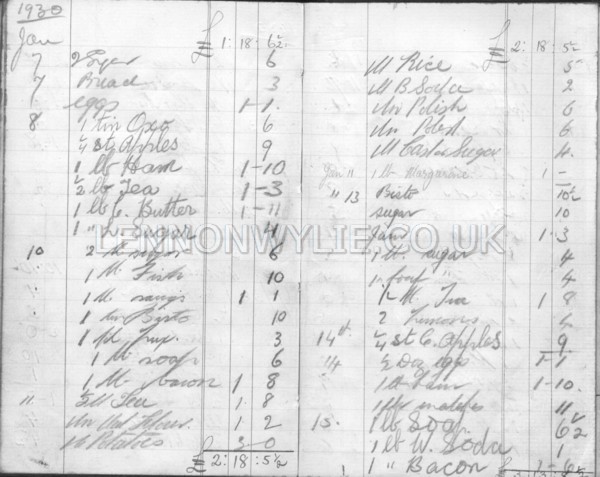 1930
Jan
£ 1 : 18 : 6½
7 6
7 Bread 3
eggs 1-1
8 1 tin Oxo 6
¼ st Apples 9
1 lb Ham 1-10
½ lb Tea 1-3
1 lb C. Butter 1-11
1 " L. Sugar 4
10 2 lb sugar 6
1 lb 10
1 lb 1 1
1 tin Bisto 10
1 3
1 lb soap 6
1 lb bacon 1 8
11 Tea 1 8
1 2
Potatoes 3 0
£ 2 : 18 : 5½
£ 2 : 18 : 5½
Rice 5
B Soda 2
Polish 6
6
Castor Sugar 4
Jan 11 1 lb Margarine 1 -
" 13 Bisto 10½
sugar 10
Jam 1 3
1 lb sugar 4
1 loaf 4
½ lb Tea 1 8
2 Lemons
14th ¼ st C. Apples 9
"14 ½ Doz eggs 1-1
1 lb 1-10
matches 11
15. 1 lb Soap 6½
1 lb W. Soda 1
1 " Bacon 1-6
LENNONWYLIE.CO.UK